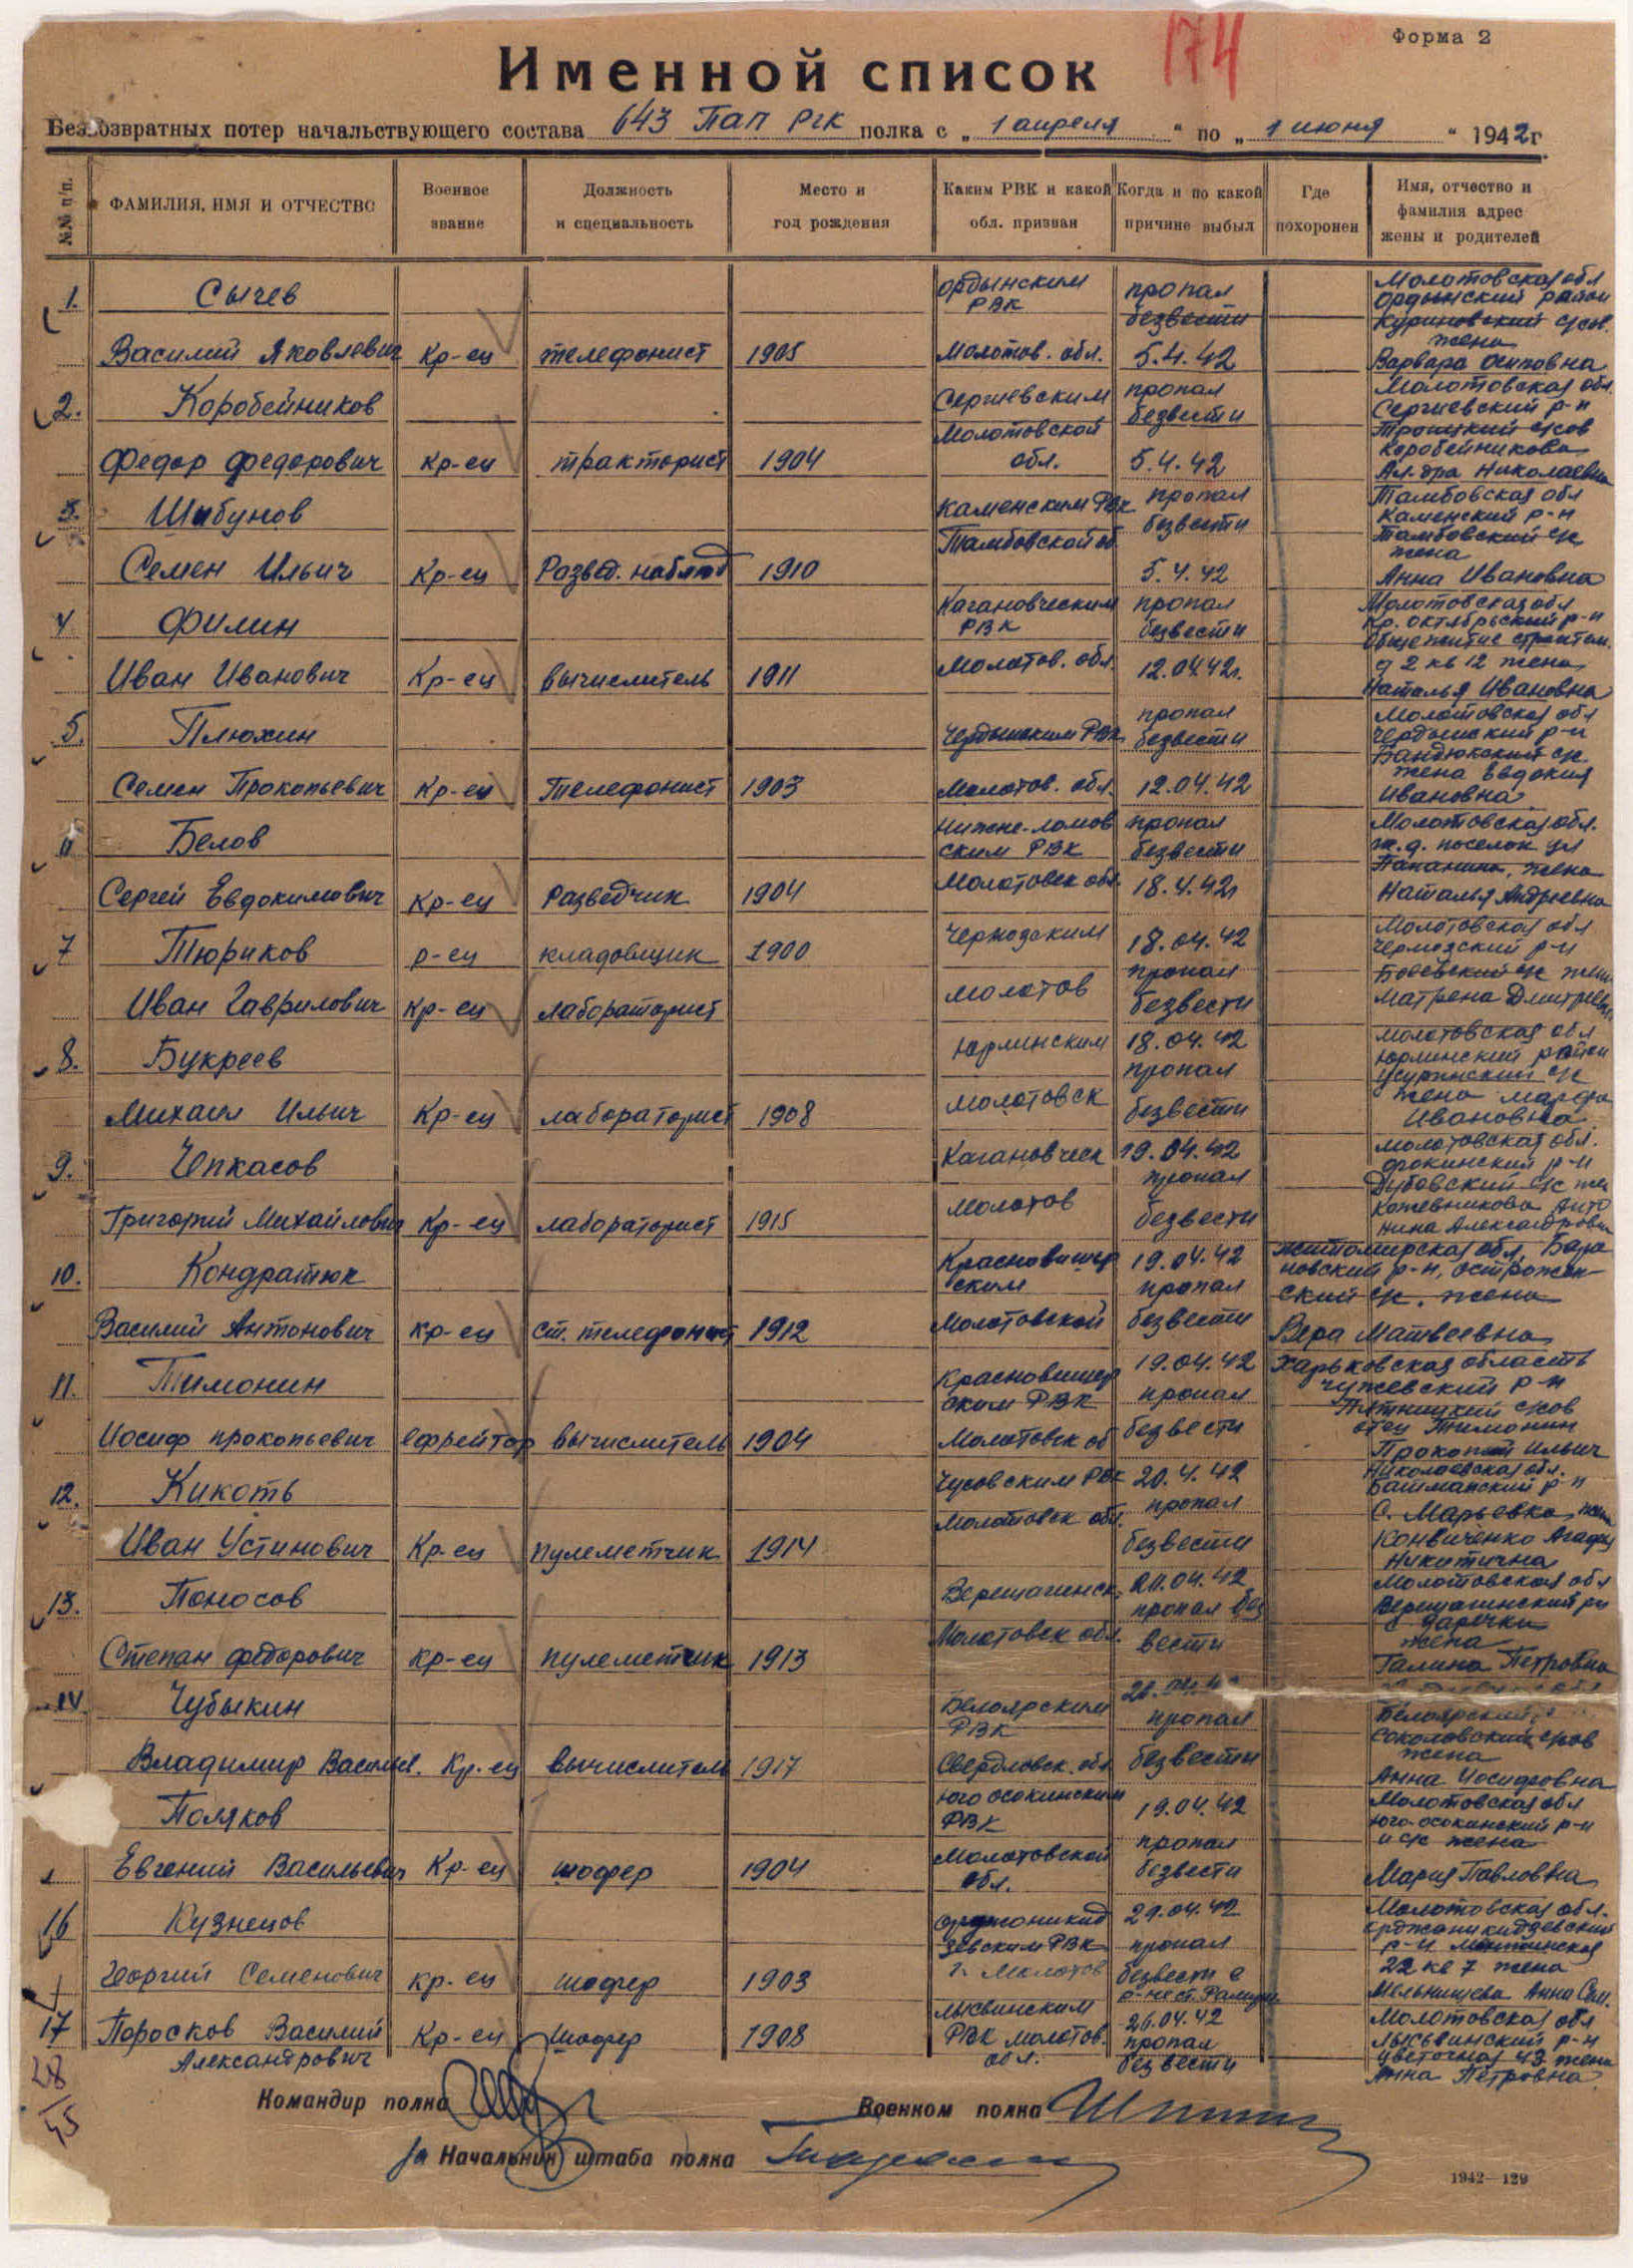 174
Форма 2
Именной список
Безвозвратных потер начальствующего состава 643 Пап РГК полка с „ 1 апреля “ по „ 1 июня “ 1942г
№№ п/п.
ФАМИЛИЯ, ИМЯ И ОТЧЕСТВО
Военное звание
Должность и специальность
Место и год рождения
Каким РВК и какой обл. призван
Когда и по какой причине выбыл
Где похоронен
Имя, отчество и фамилия адрес жены и родителей
1. Сычев
Василий Яковлевич Кр-ец телефонист 1905
Ордынским РВК
Молотов. обл.
пропал безвести
5.4.42
Молотовская обл
Ордынский район
Куриновский с/сов.
жена
Варвара Осиповна
2. Коробейников
Федор Федорович Кр-ец тракторист 1904
Сергиевским
Молотовской обл.
пропал безвести
5.4.42
Молотовская обл.
Сергиевский р-н
Троицкий с/сов
Коробейникова
Ал-дра Николаевна
3. Шибунов
Семен Ильич Кр-ец Развед. наблюд 1910
Каменским РВК
Тамбовской об.
пропал безвести
5.4.42
Тамбовская обл
Каменский р-н
Тамбовский с/с
жена
Анна Ивановна
4 Филин
Иван Иванович Кр-ец вычислитель 1911
Кагановческим РВК
Молотов. обл.
пропал безвести
12.04.42г.
Молотовская обл
Кр. октябрьский р-н
Общежитие
д 2 кв 12 жена
Наталья Ивановна
5. Плюхин
Семен Прокопьевич Кр-ец Телефонист 1903
Чердынским РВК
Молотов. обл.
пропал безвести
12.04.42
Молотовская обл
Чердынский р-н
Бандюкский с/с
жена Евдокия
Ивановна
Белов
Сергей Евдокимович Кр-ец Разведчик 1904
Нижне-ломов
ским РВК
Молотовск обл.
пропал безвести
18.4.42г
Молотовская обл.
ж.д. поселок ул
Папанина, жена
Наталья Андреевна
7 Тюриков р-ец кладовщик 1900
Иван Гаврилович Кр-ец лабораторист
Чермозским
Молотов
18.04.42
пропал
безвести
Молотовская обл
Чермозский р-н
с/с жена
Матрена Дмитриевна
8. Букреев
Михаил Ильич Кр-ец лабораторист 1908
Юрлинским
Молотовск
18.04.42
пропал
безвести
Молотовская обл
Юрлинский район
Усуринский с/с
жена Марфа
Ивановна
9. Чепкасов
Григорий Михайлович Кр-ец лабораторист 1915
Кагановческ
Молотов
19.04.42
пропал
безвести
Молотовская обл.
Фокинский р-н
Дубовский с/с жен
Кожевникова Анто
нина Александровна
10. Кондратюк
Василий Антонович Кр-ец ст. телефонист 1912
Красновишер
ским
Молотовской
19.04.42
пропал
безвести
Житомирская обл, Бара
новский р-н, острожен-
ский с/с. жена
Вера Матвеевна
11. Тимонин
Иосиф прокопьевич ефрейтор вычислитель 1904
Красновишер
ским РВК
Молотовск об
19.04.42
пропал
безвести
Харьковская область
чужевский р-н
Пятницкий с/сов
отец Тимонин
Прокопий Ильич
12. Кикоть
Иван Устинович Кр-ец пулеметчик 1914
Чусовским РВК
Молотовск обл.
20.4.42
пропал
безвести
Николаевская обл.
Башманский р-н
с. Марьевка, жена
Конвиченко Агафья
Никитична
13. Поносов
Степан федорович Кр-ец пулеметчик 1913
Верещагинск.
Молотовск обл.
20.04.42
пропал без
вести
Молотовская обл
Верещагинский рн
с Заречки
жена
Галина Петровна
14 Чубыкин
Владимир Васильев. Кр-ец вычислитель 1917
Белоярским
РВК
Свердловск. обл
пропал
безвести
Белоярский
Соколовский с/сов
жена
Анна Иосифовна
Поляков
Евгений Васильевич Кр-ец шофер 1904
Юго осокинским
РВК
Молотовской
обл.
19.04.42
пропал
безвести
Молотовская обл
Юго-осокинский р-н
и с/с жена
Мария Павловна
16 Кузнецов
Георгий Семенович Кр-ец шофер 1903
Орджоникид
зевским РВК
г. Молотов
29.04.42
пропал
безвести в
р-не ст.
Молотовская обл.
орджоникидзевский
р-н
22 кв 7 жена
Мельнищева Анна Сем.
17 Поросков Василий
Александрович
Кр-ец Шофер 1908
Лысвинским
РВК Молотов.
обл.
26.04.42
пропал
без вести
Молотовская обл
Лысьвинский р-н
Цветочная 43 жена
Анна Петровна
28
45
Командир полка
Военком полка
за Начальник штаба полка
1942—129